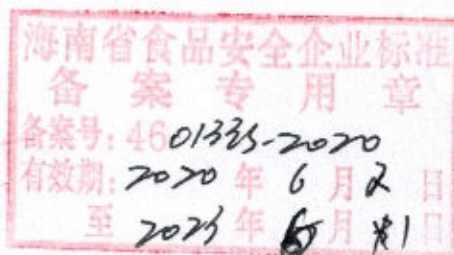 海南省食品安全企业标准
备案专用章
备案号: 46 01333-2020
有效期: 2020 年 6 月 2 日
至 2023 年 6 月 1 日